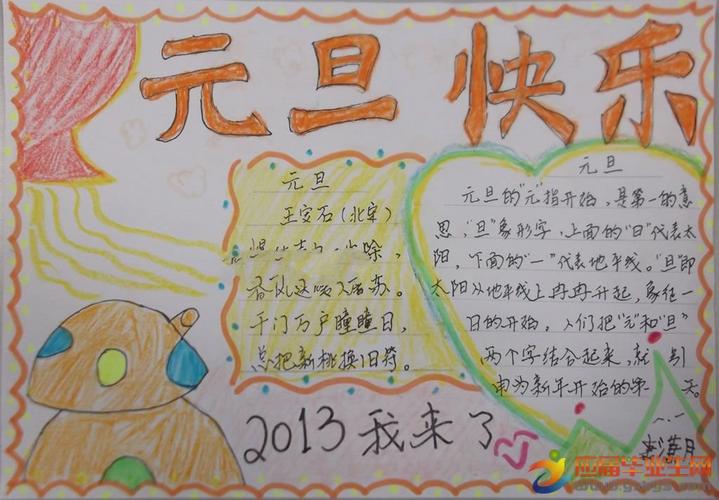 元旦快乐
元旦
王安石(北宋)
除,
春风送暖入屠苏。
千门万户瞳瞳日,
总把新桃换旧符。
元旦
元旦的"元"指开始,是第一的意
思,"旦"象形字,上面的"日"代表太
阳,下面的"一"代表地平线。"旦"即
太阳从地平线上冉冉升起,象征一
日的开始,人们把"元"和"旦"
两个字结合起来,就引
申为新年开始的第一天。
2013 我来了
应届毕业生网